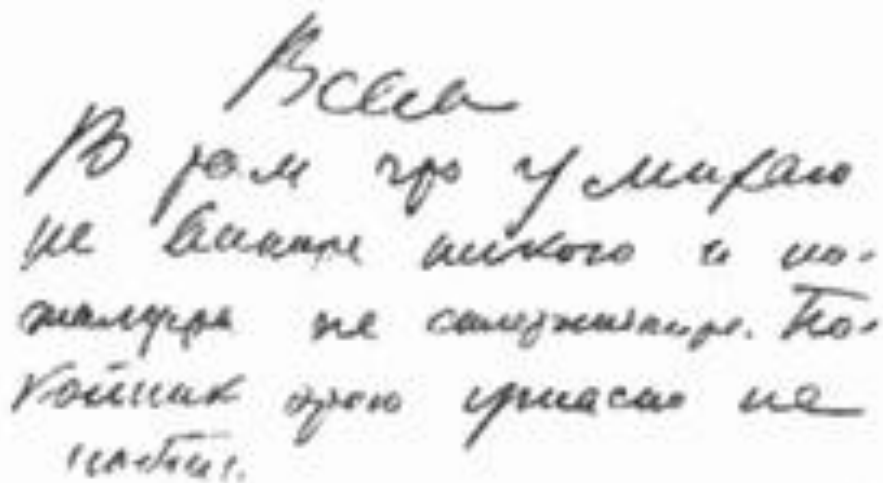 Всем
В том что умираю
не вините никого и по-
жалуйста не сплетничайте. По-
койник этого ужасно не
любил.